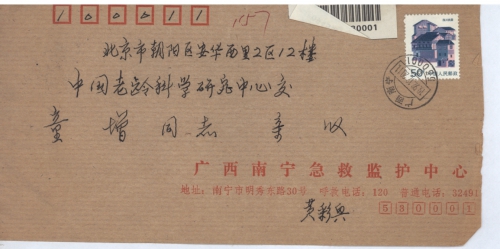 100011
157
0001
北京市朝阳区安华西里2区12楼
中国老龄科学研究中心交
童增同志 亲收
50
中国人民邮政
广西南宁
广西南宁急救监护中心
地址：南宁市明秀东路30号 呼救电话：120 普通电话：32491
黄彩兴
580003